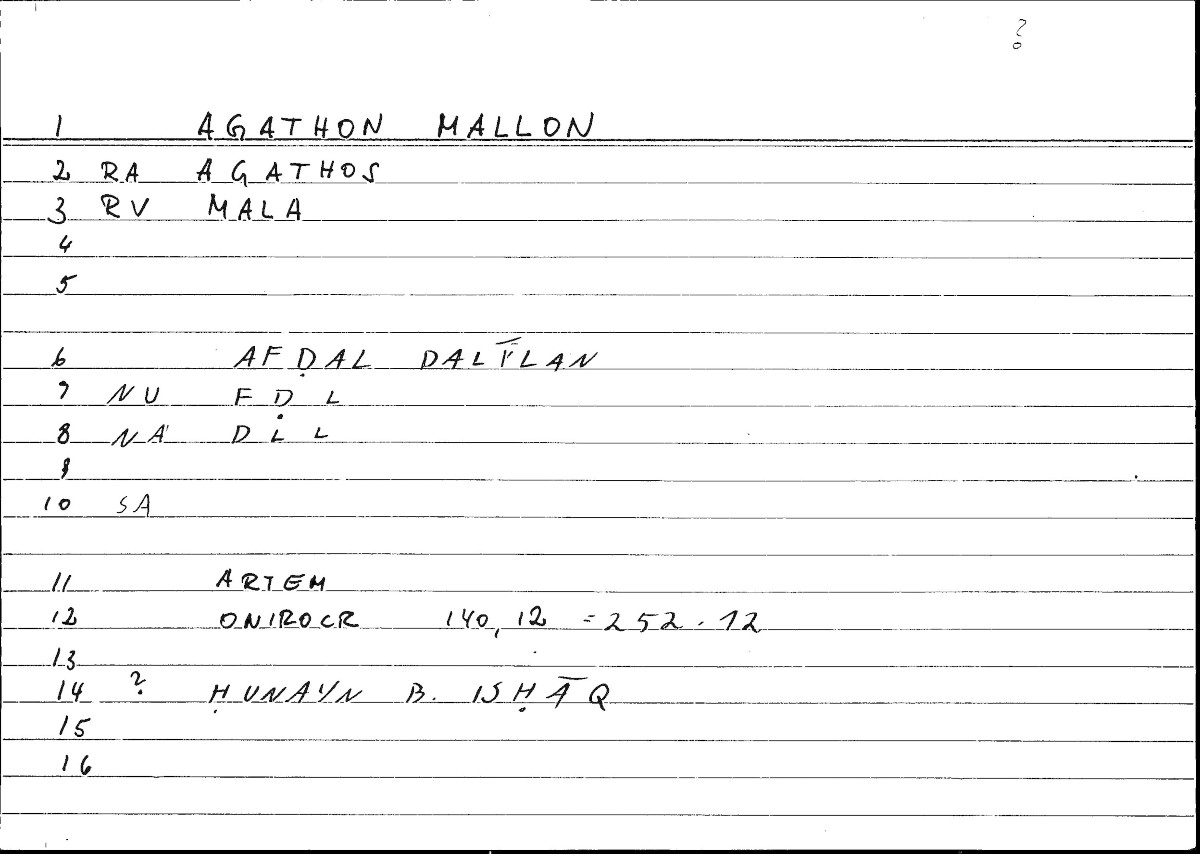 ?
1 AGATHON MALLON
2 RA AGATHOS
3 RV MALA
4
5
6 AFḌAL DALĪLAN
7 NU F Ḍ L
8 NA' D L L
9
10 SA
11 ARTEM
12 ONIROCR 140,12 = 252.12
13
14 ? ḤUNAYN B. ISḤĀQ
15
16